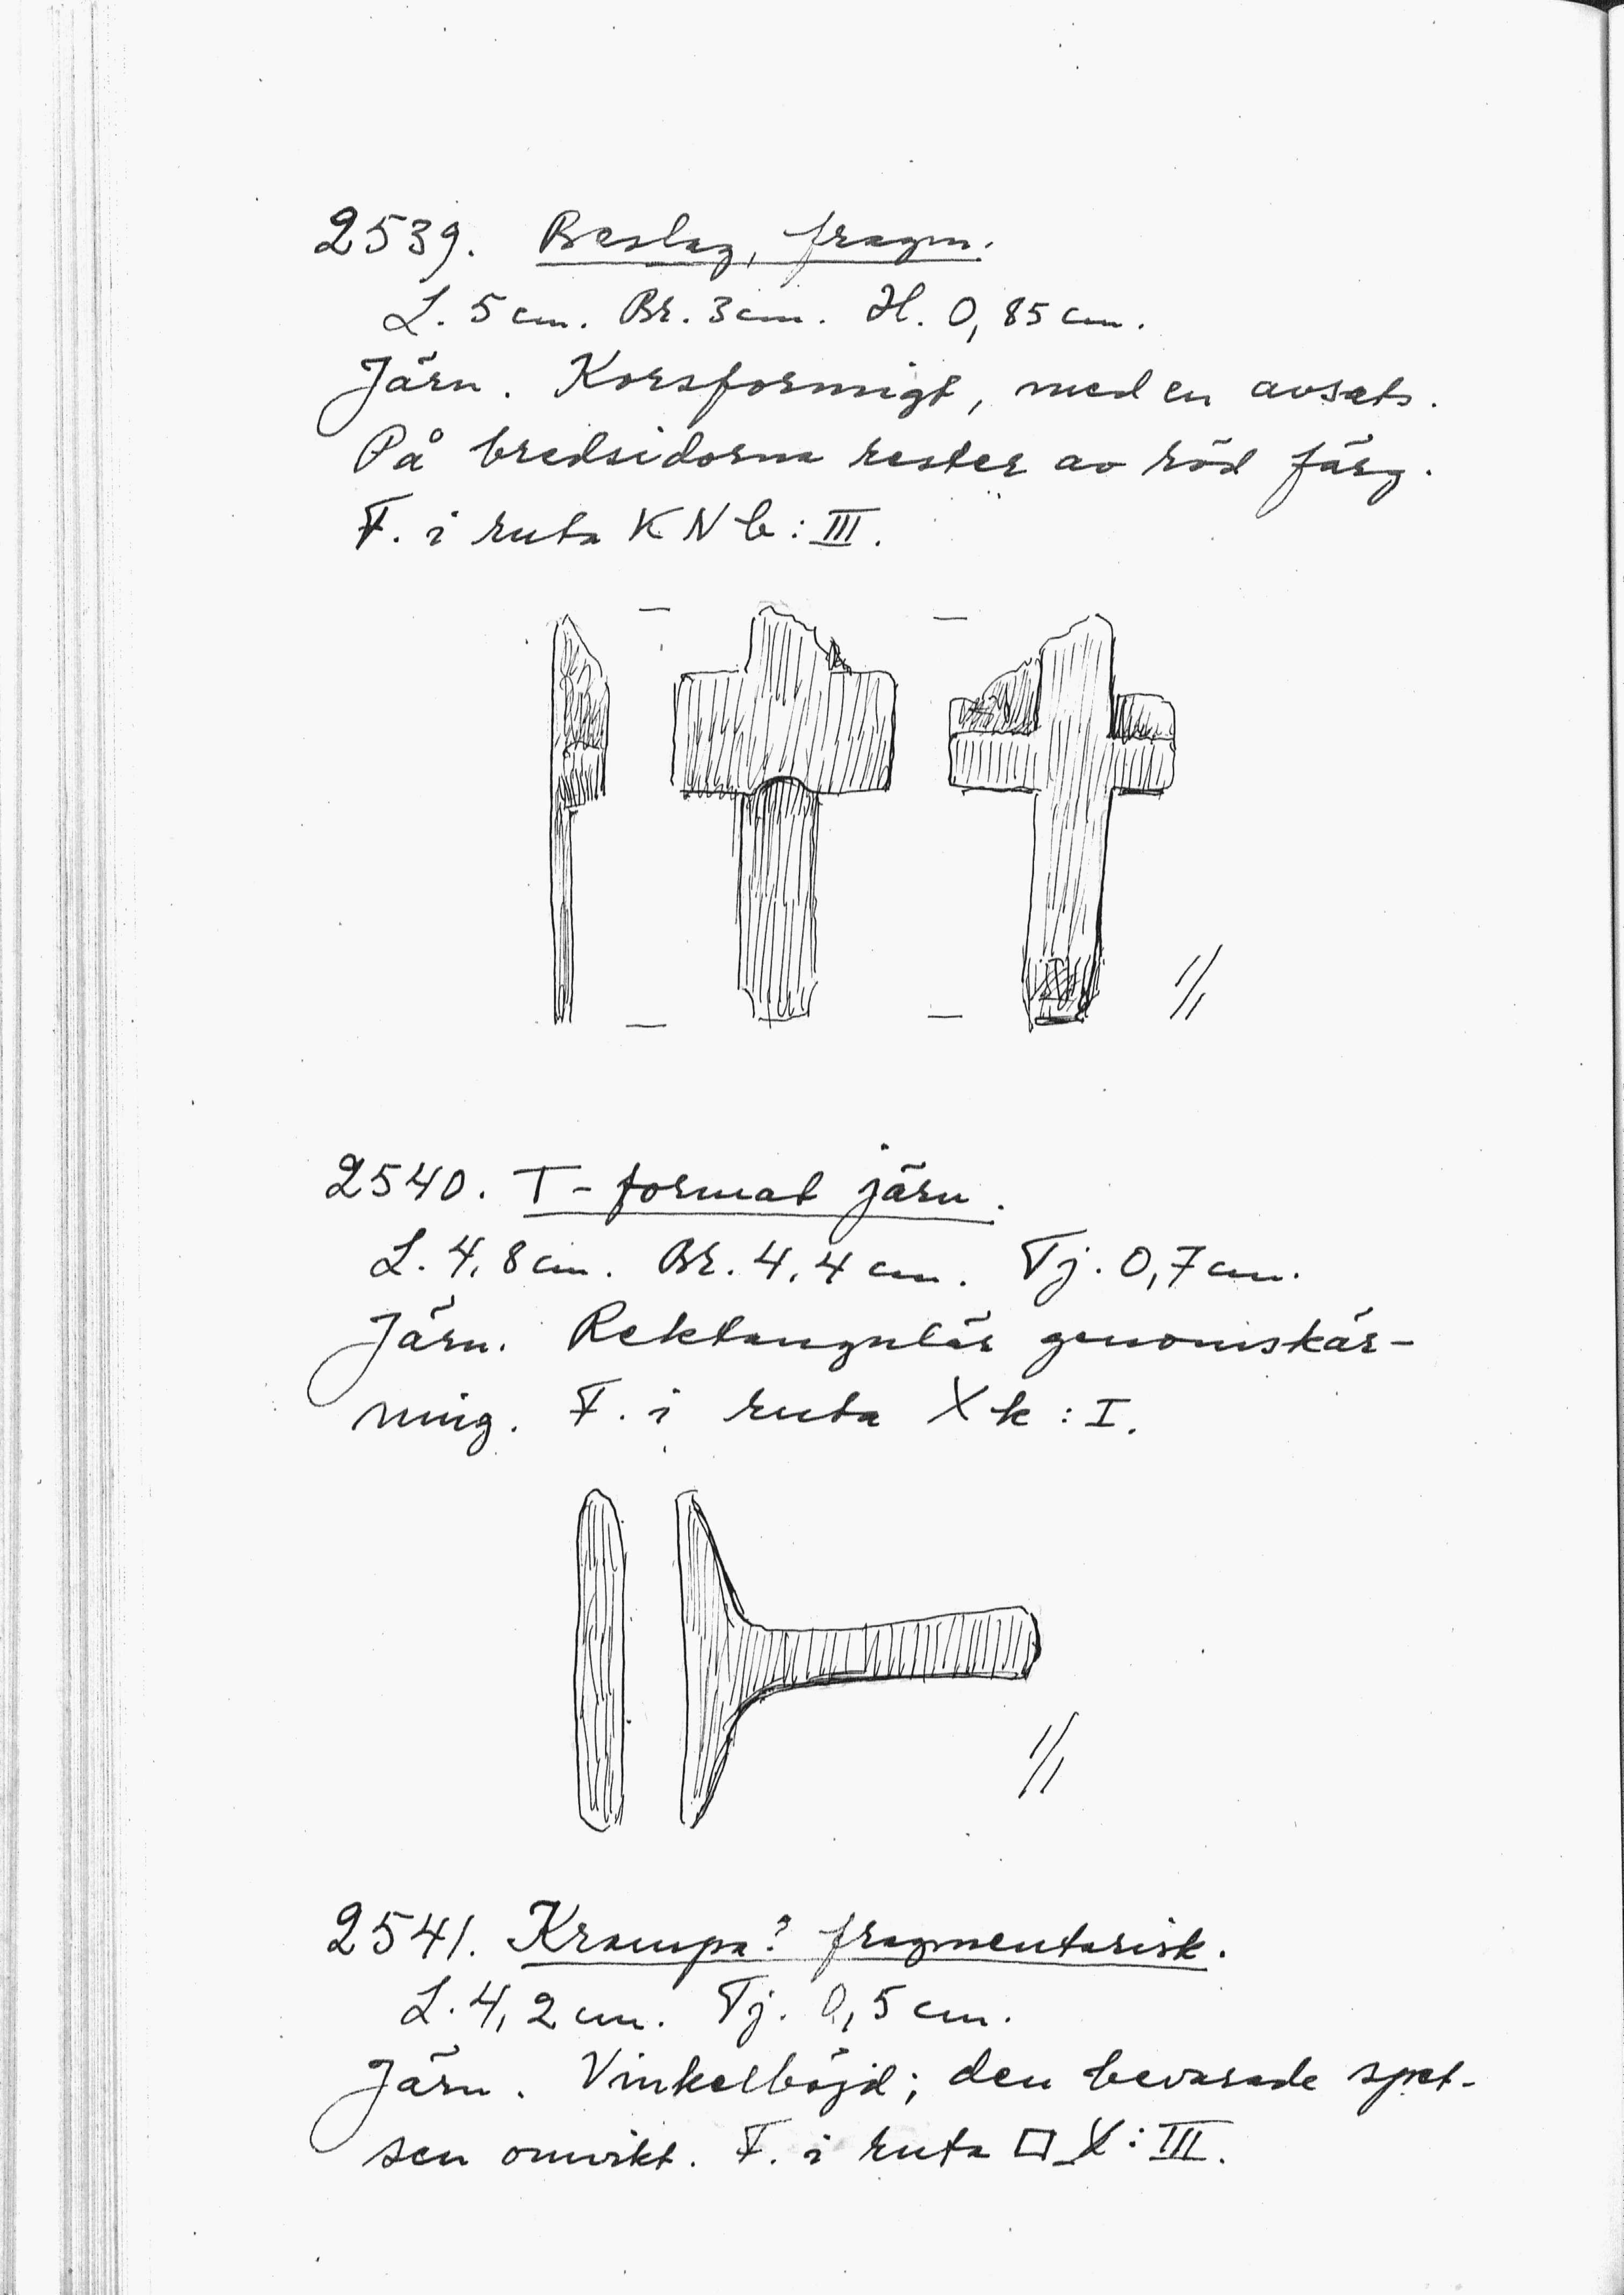 2539. Beslag, fragm.
L. 5 cm. Br. 3 cm. H. 0,85 cm.
Järn. Korsformigt, med en avsats.
På bredsidorna rester av röd färg.
F. i ruta K N b : III.
1/1
2540. T-format järn.
L. 4,8 cm. Br. 4,4 cm. Tj. 0,7 cm.
Järn. Rektangulär genomskär-
ning. F. i ruta X k : I.
1/1
2541. Krampa? fragmentarisk.
L. 4,2 cm. Tj. 0,5 cm.
Järn. Vinkelböjd; den bevarade spet-
sen omvikt. F. i ruta □ X : III.